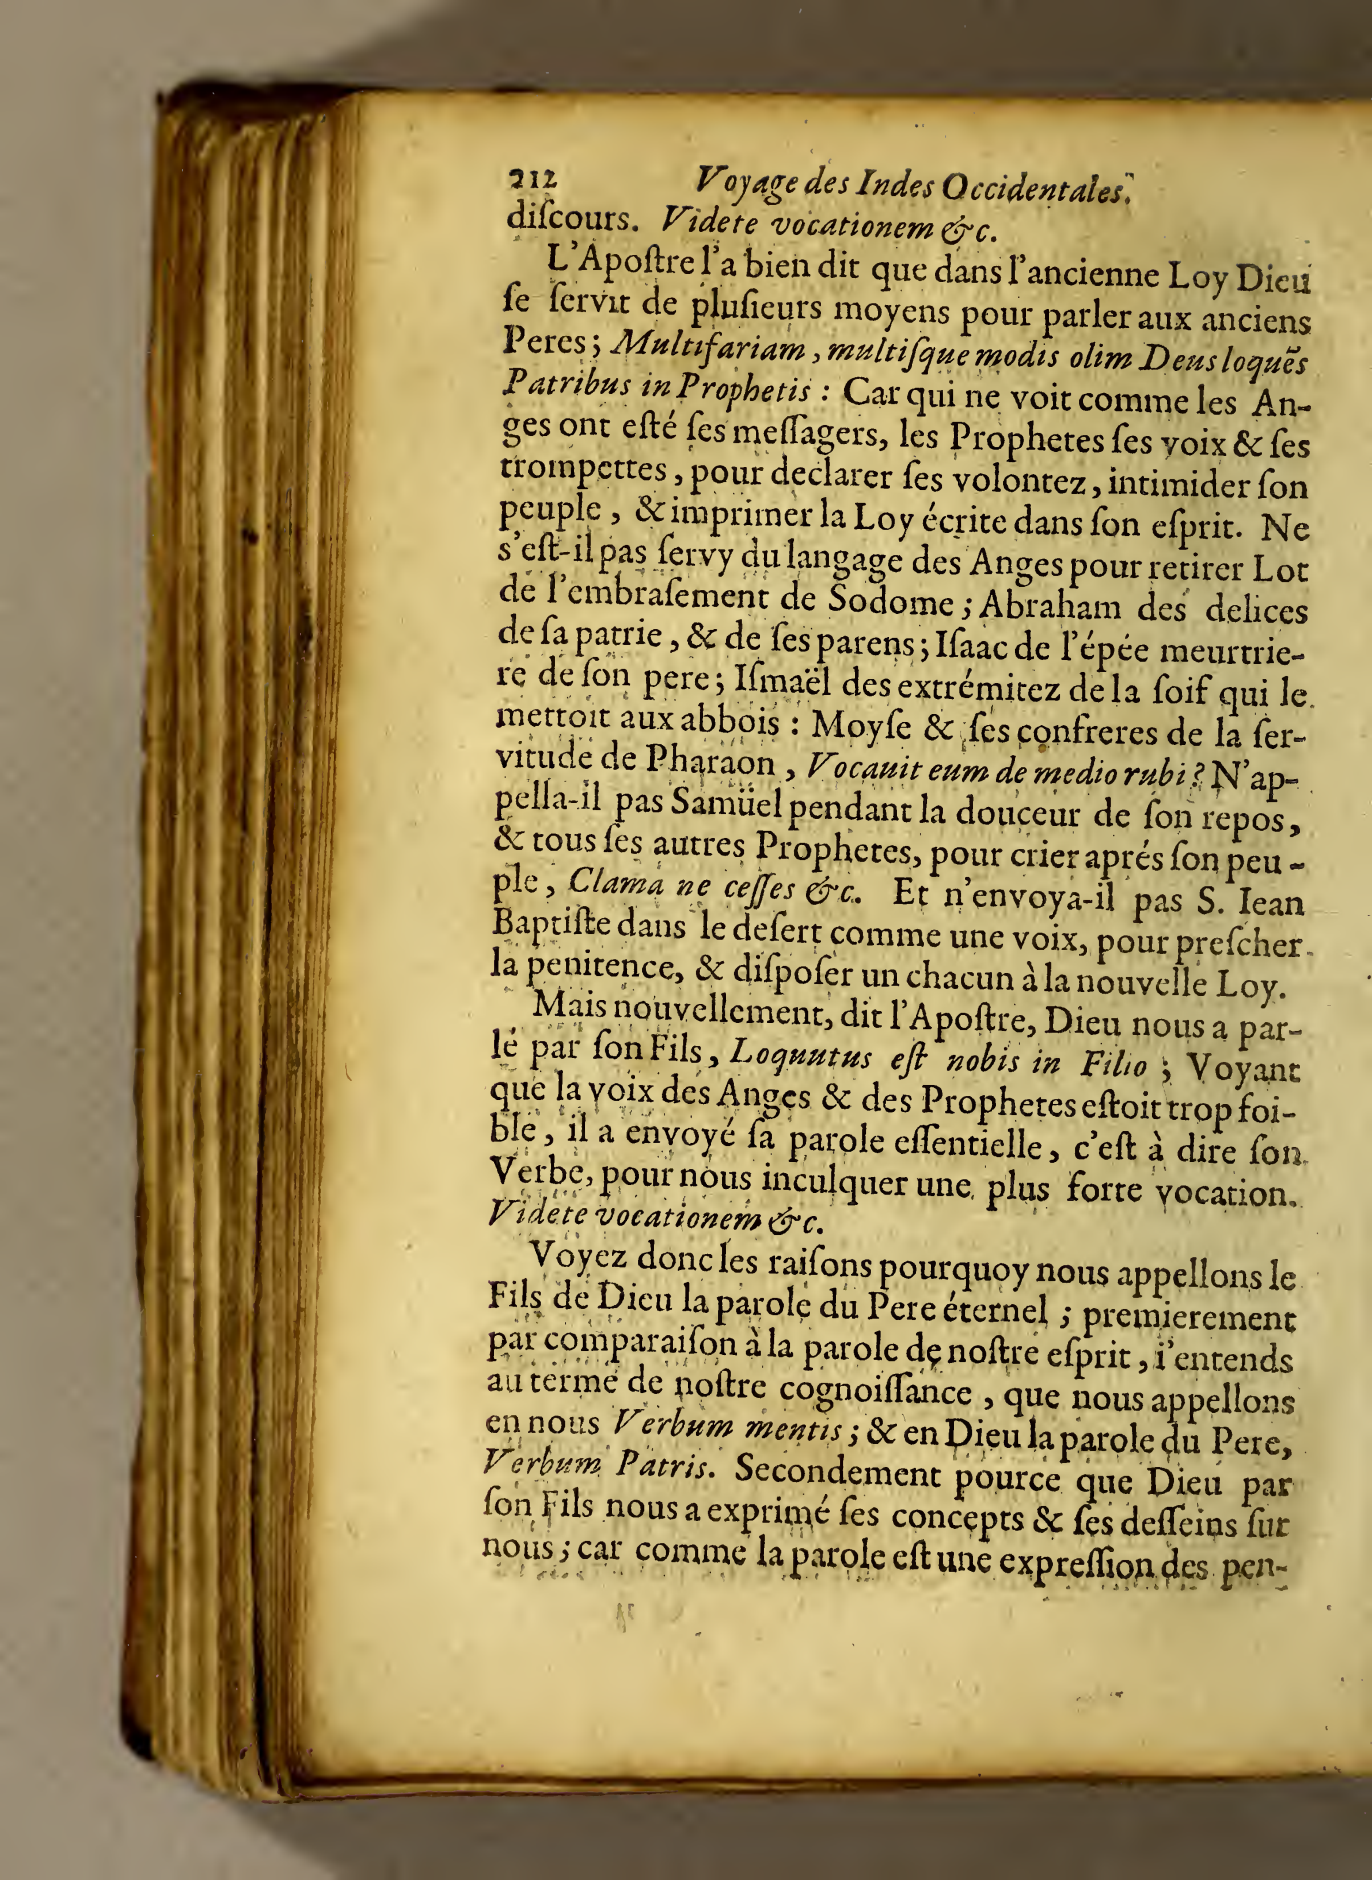 212 Voyage des Indes Occidentales.
diſcours. Videte vocationem &c.
L'Apoſtre l'a bien dit que dans l'ancienne Loy Dieu
ſe ſervit de pluſieurs moyens pour parler aux anciens
Peres ; Multifariam, multiſque modis olim Deus loquẽs
Patribus in Prophetis : Car qui ne voit comme les An-
ges ont eſté ſes meſſagers, les Prophetes ſes voix & ſes
trompettes, pour declarer ſes volontez, intimider ſon
peuple, & imprimer la Loy écrite dans ſon eſprit. Ne
s'eſt-il pas ſervy du langage des Anges pour retirer Lot
de l'embraſement de Sodome ; Abraham des delices
de ſa patrie, & de ſes parens ; Iſaac de l'épée meurtrie-
re de ſon pere ; Iſmaël des extrémitez de la ſoif qui le
mettoit aux abbois : Moyſe & ſes confreres de la ſer-
vitude de Pharaon, Vocauit eum de medio rubi ? N'ap-
pella-il pas Samüel pendant la douceur de ſon repos,
& tous ſes autres Prophetes, pour crier aprés ſon peu-
ple, Clama ne ceſſes &c. Et n'envoya-il pas S. Iean
Baptiſte dans le deſert comme une voix, pour preſcher
la penitence, & diſpoſer un chacun à la nouvelle Loy.
Mais nouvellement, dit l'Apoſtre, Dieu nous a par-
lé par ſon Fils, Loquutus eſt nobis in Filio ; Voyant
que la voix des Anges & des Prophetes eſtoit trop foi-
ble, il a envoyé ſa parole eſſentielle, c'eſt à dire ſon
Verbe, pour nous inculquer une plus forte vocation.
Videte vocationem &c.
Voyez donc les raiſons pourquoy nous appellons le
Fils de Dieu la parole du Pere éternel ; premierement
par comparaiſon à la parole de noſtre eſprit, i'entends
au terme de noſtre cognoiſſance, que nous appellons
en nous Verbum mentis ; & en Dieu la parole du Pere,
Verbum Patris. Secondement pource que Dieu par
ſon Fils nous a exprimé ſes concepts & ſes deſſeins ſur
nous ; car comme la parole eſt une expreſſion des pen-